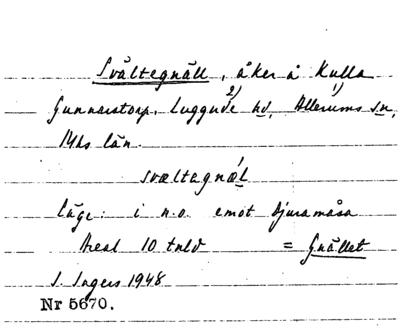 Svältegnäll, åker å Kulla
Gunnarstorp, Luggude 2) hd, Allerums 1) sn,
Mhs län.
svæltagnæ̀l
Läge: i n.o. emot Djuramåsa
Areal 10 tnld = Gnället
I. Ingers 1948
Nr 5670.